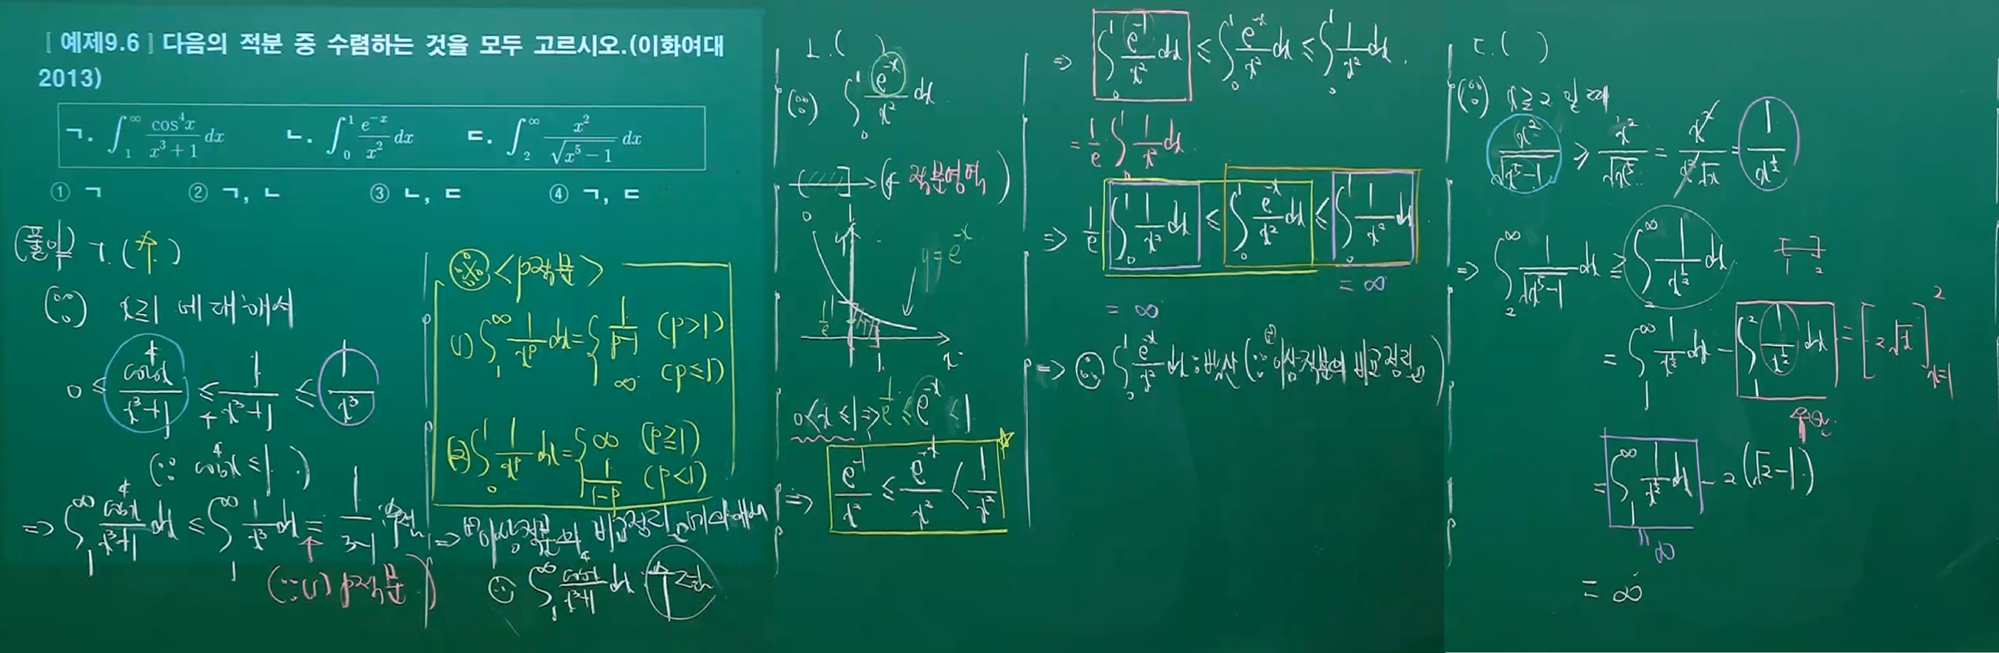 [ 예제9.6 ] 다음의 적분 중 수렴하는 것을 모두 고르시오.(이화여대
2013)
ㄱ. ∫_1^∞ cos⁴x/(x³+1) dx ㄴ. ∫_0^1 e^{-x}/x² dx ㄷ. ∫_2^∞ x²/√(x⁵-1) dx
① ㄱ ② ㄱ, ㄴ ③ ㄴ, ㄷ ④ ㄱ, ㄷ
(풀이) ㄱ. (수)
(∵) x≥1 에 대해서
0 ≤ cos⁴x/(x³+1) ≤ 1/(x³+1) ≤ 1/x³
(∵ cos⁴x ≤ 1.)
⇒ ∫_1^∞ cos⁴x/(x³+1) dx ≤ ∫_1^∞ 1/x³ dx = 1/(3-1) : 수렴
(∵(1) p적분)
※ <p적분>
(1) ∫_1^∞ 1/x^p dx = { 1/(p-1) (p>1)
∞ (p≤1)
(2) ∫_0^1 1/x^p dx = { ∞ (p≧1)
1/(1-p) (p<1)
⇒ 이상적분의 비교정리에 의해서
∴ ∫_1^∞ cos⁴x/(x³+1) dx : 수렴
ㄴ. ( )
(∵) ∫_0^1 e^{-x}/x² dx
0 1 (← 적분영역)
y
y = e^{-x}
1
1/e
1 x
0<x≤1 ⇒ 1/e ≤ e^{-x} < 1
⇒ e^{-1}/x² ≤ e^{-x}/x² < 1/x²
⇒ ∫_0^1 e^{-1}/x² dx ≤ ∫_0^1 e^{-x}/x² dx ≤ ∫_0^1 1/x² dx.
= 1/e ∫_0^1 1/x² dx
⇒ 1/e ∫_0^1 1/x² dx ≤ ∫_0^1 e^{-x}/x² dx ≤ ∫_0^1 1/x² dx
= ∞ = ∞
⇒ ∴ ∫_0^1 e^{-x}/x² dx : 발산 (∵ 이상적분의 비교정리)
ㄷ. ( )
(∵) x≥2 일 때
x²/√(x⁵-1) ≥ x²/√x⁵ = x²/(x²√x) = 1/x^{1/2}
⇒ ∫_2^∞ 1/√(x⁵-1) dx ≥ ∫_2^∞ 1/x^{1/2} dx
1 2
= ∫_1^∞ 1/x^{1/2} dx - ∫_1^2 1/x^{1/2} dx = [2√x]_{x=1}^2
= ∫_1^∞ 1/x^{1/2} dx - 2(√2-1)
∞
= ∞